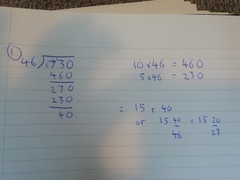 ① 46 ) 730
460
270
230
40
10 x 46 = 460
5 x 46 = 230
= 15 r 40
or 15 40/46 = 15 20/23